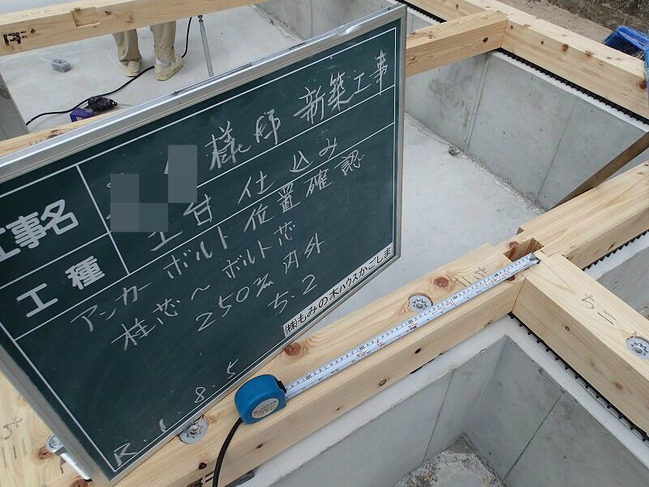 工事名
様邸 新築工事
工種
土台 仕込み
アンカーボルト位置確認
柱芯～ボルト芯
250㎜内外
ち.2
R.1.8.5
㈱もみの木ハウスかごしま